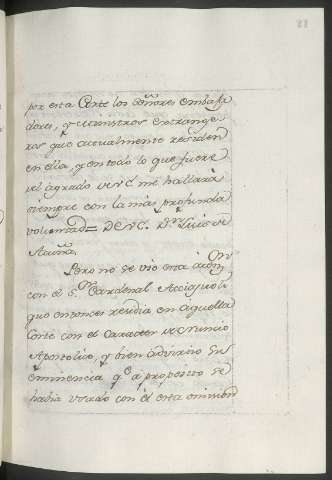 por esta Corte los Señores embaja
dores, y Ministros estrange
ros que actualmente residen
en ella, y en todo lo que fuere
del agrado de V.E. me hallará
siempre con la más profunda
voluntad = De V.E. Dn. Luis de
Acuña.
Pero no se vio esta
con el Sr. Cardenal Acciajuoli
que entonces residia en aquella
Corte con el Caracter de Nuncio
Apostolico, y bien advirtio Su
eminencia qe. a proposito se
habia usado con él esta omision